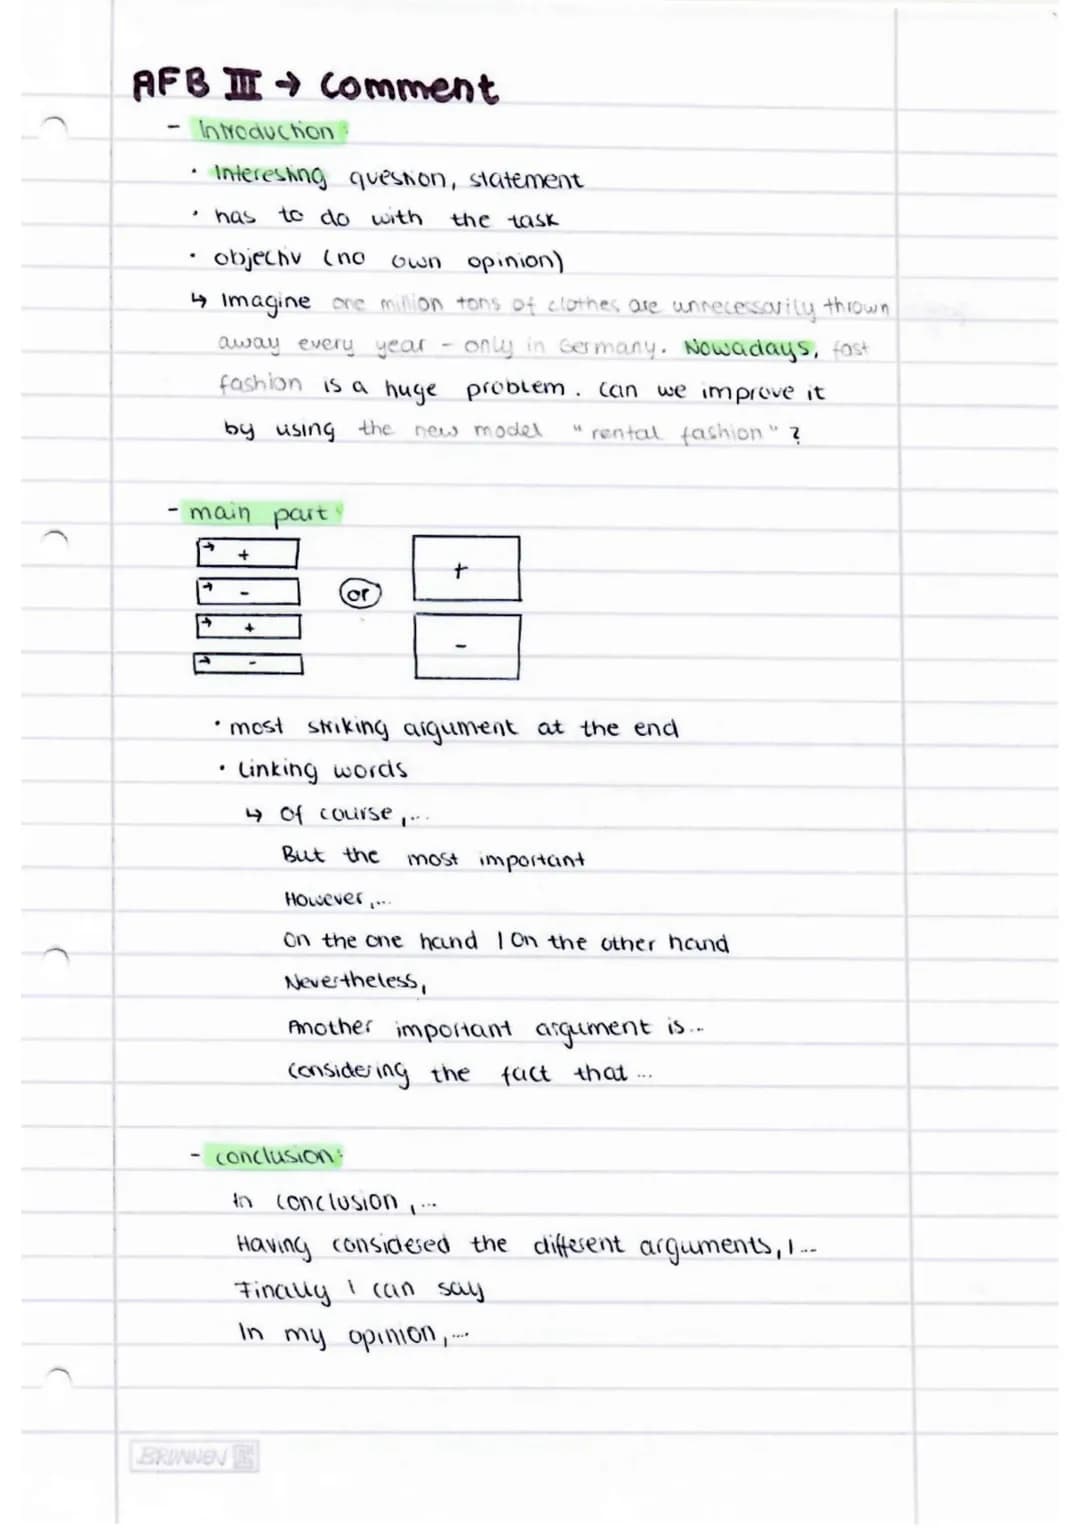 AFB III → Comment
- Introduction:
· Interesting question, statement
· has to do with the task
· objectiv (no own opinion)
↳ Imagine one million tons of clothes are unnecessarily thrown
away every year - only in Germany. Nowadays, fast
fashion is a huge problem. Can we improve it
by using the new model "rental fashion"?
- main part:
→ +
→ -
→ +
→ -
or
+
-
· most striking argument at the end
· Linking words
↳ Of course,...
But the most important
However,...
On the one hand / On the other hand
Nevertheless,
Another important argument is...
Considering the fact that...
- conclusion:
In conclusion,...
Having considered the different arguments, I...
Finally I can say
In my opinion,...
BRUNNEN